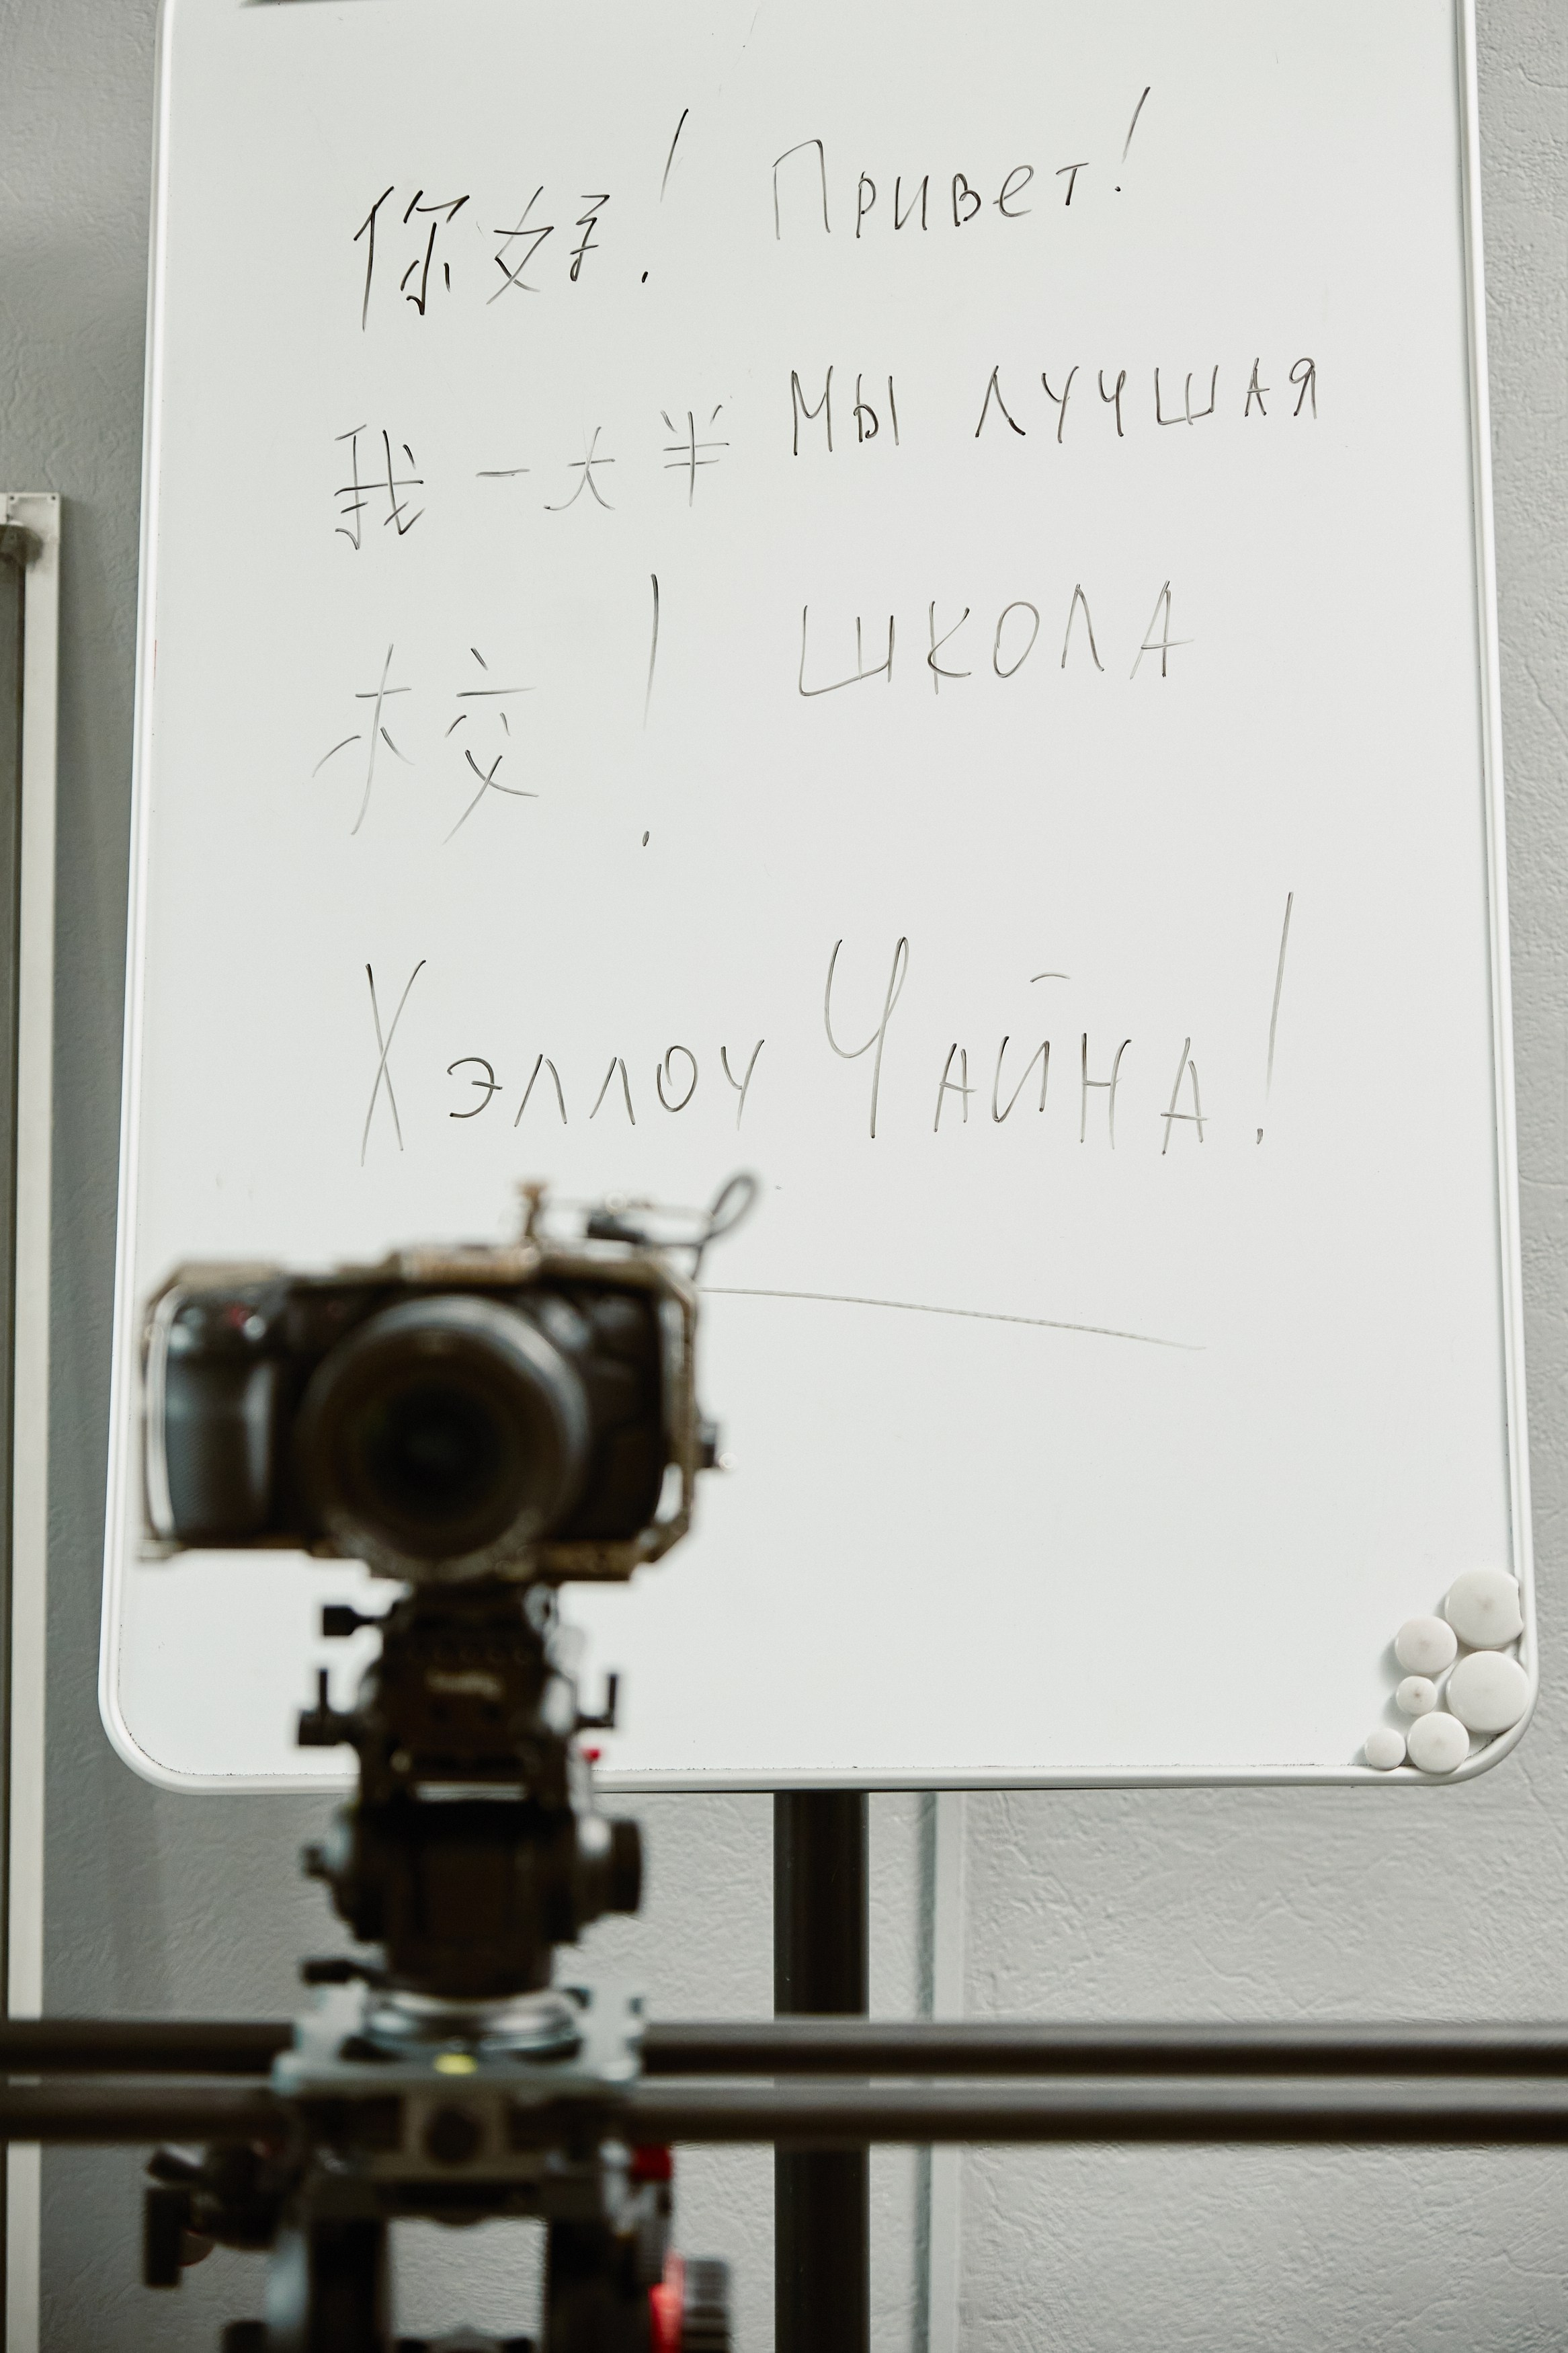 你好! Привет!
我一大半 Мы лучшая
校! школа
Хэллоу Чайна!